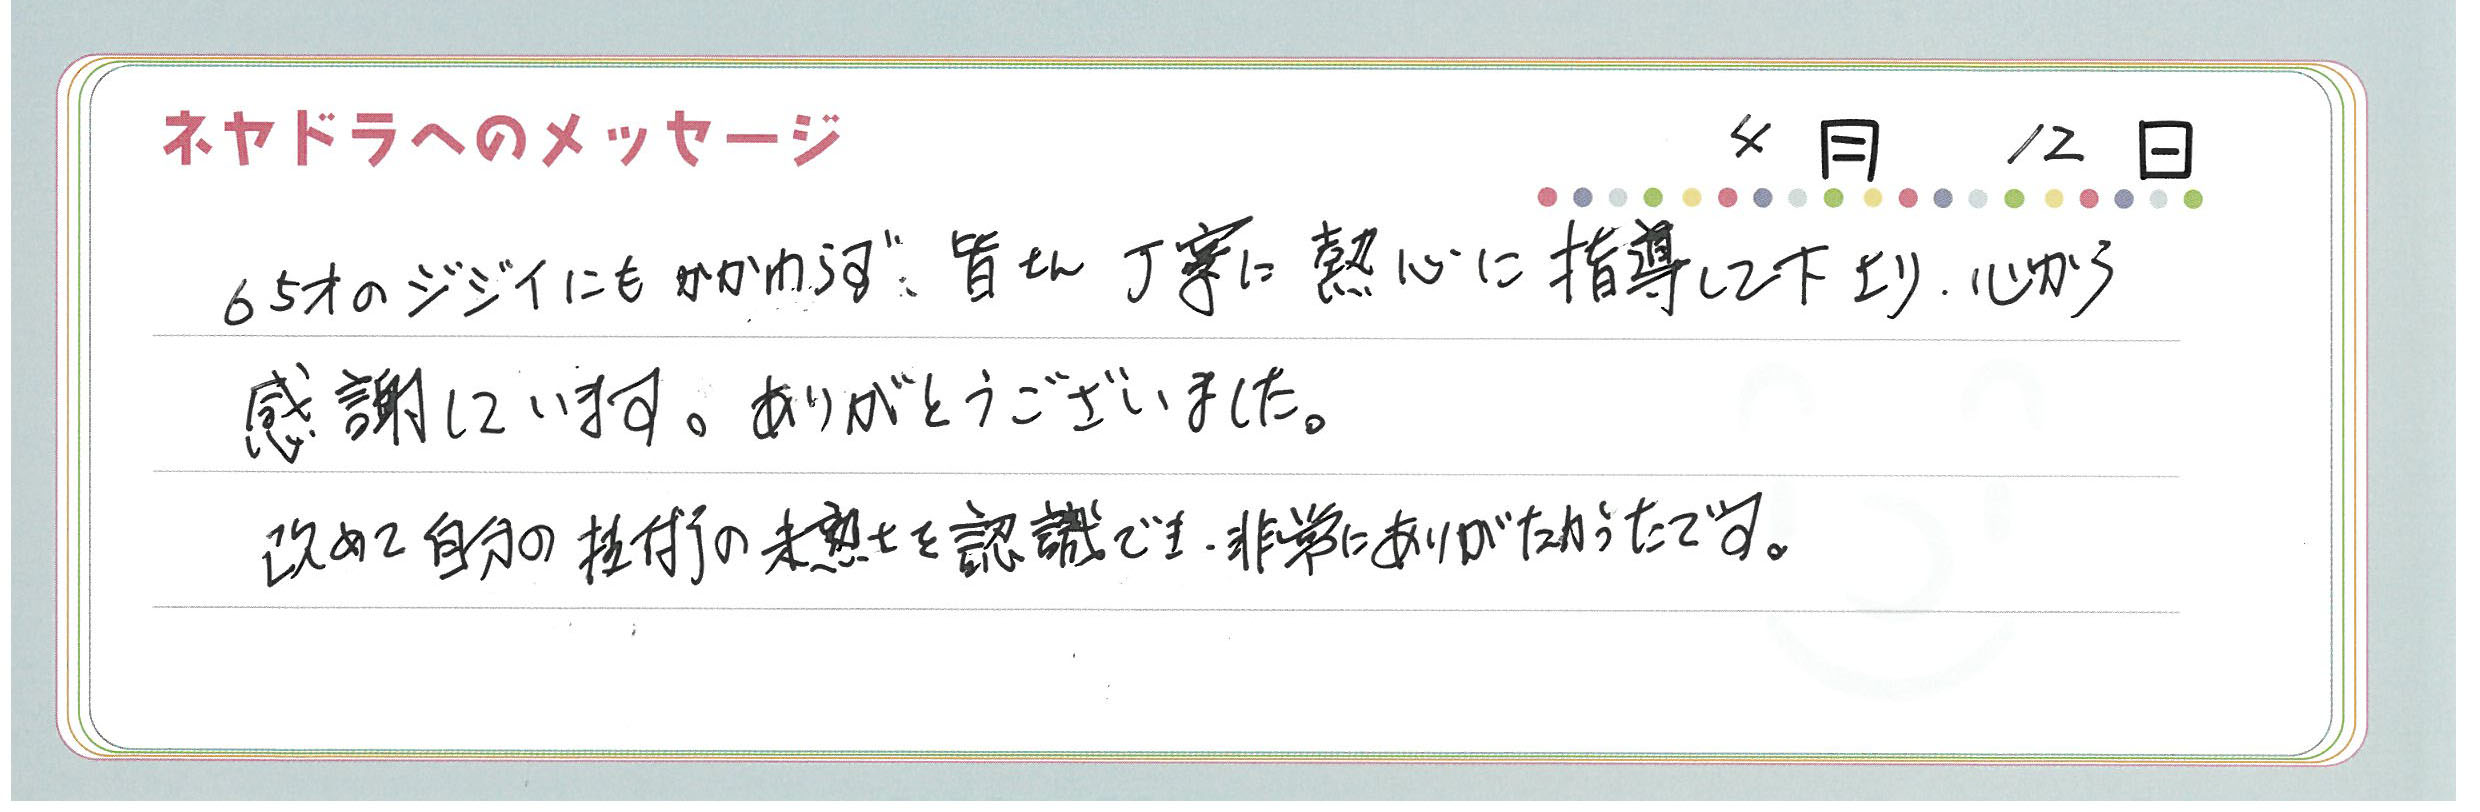 ネヤドラへのメッセージ
4月 12日
65才のジジイにもかかわらず、皆せん丁寧に熱心に指導して下さり、心から
感謝しています。ありがとうございました。
改めて自分の技術の未熟さを認識でき、非常にありがたかったです。